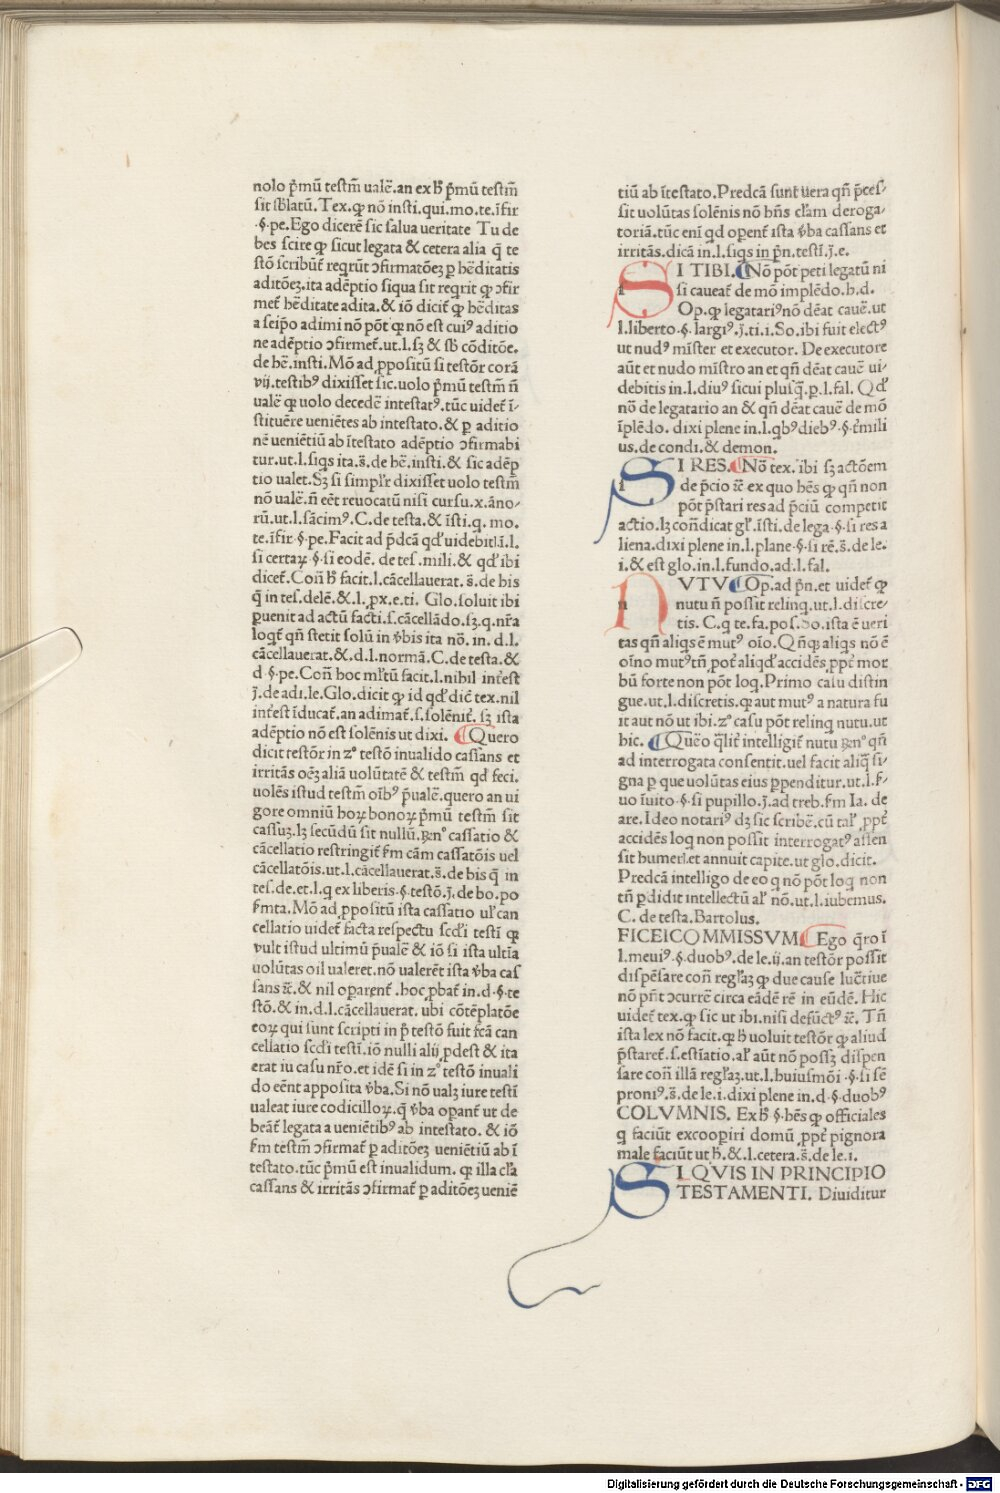 nolo p̃mũ testm̃ ualẽ.an ex h̃ p̃mũ testm̃
sit sb̃latũ. Tex. qͥ nõ insti. qui. mo. te. ĩfir
·§·pe. Ego dicerẽ sic salua ueritate Tu de
bes scire ꝙ sicut legata & cetera alia q̃ te
stõ scribũt̃ reqrũt ↄfirmatõeꝫ p hẽditatis
aditõeꝫ.ita adẽptio siqua sit reqrit ꝙ ↄfir
met̃ hẽditate adita.& iõ dicit̃ ꝙ hẽditas
a seip̃o adimi nõ põt ꝙ nõ est cuiꝰ aditio
ne adẽptio ↄfirmet̃.ut.l.sꝫ & sb̃ cõditõe.
de hẽ.insti. Mõ ad ꝓpositũ si testõr corã
vij.testibꝰ dixisset sic.uolo p̃mũ testm̃ ñ
ualẽ ꝙ uolo decedẽ intestatꝰ.tũc uidet̃ ĩ-
stituẽre ueniẽtes ab intestato.& p aditio
nẽ ueniẽtiũ ab ĩtestato adẽptio ↄfirmabi
tur.ut.l.siqs ita.s̃.de hẽ.insti.& sic adẽp
tio ualet. Sꝫ si simplr̃ dixisset uolo testm̃
nõ ualẽ.ñ eẽt reuocatũ nisi cursu.x.ãno-
rũ.ut.l.sãcimꝰ.C.de testa.& ĩsti.q. mo.
te.ĩfir·§·pe. Facit ad p̃dcã qd̃ uidebit̃.ĩ.l.
si certaꝝ·§·si eodẽ. de tes.mili.& qd̃ ibi
dicet̃. Coñ h̃ facit.l.cãcellauerat. s̃. de his
q̃ in tes.delẽ.& .l.ꝓx.e.ti. Glo.soluit ibi
ꝑuenit ad actũ facti.s.cãcellãdo.sꝫ.q.nr̃a
loqt̃ qñ stetit solũ in ṽbis ita nõ. in. d. l.
cãcellauerat.& .d.l.normã.C.de testa.&
d·§·pe. Coñ hoc ml̃tũ facit.l.nihil int̃est
j̃.de adi.le. Glo.dicit ꝙ id qd̃ dic̃ tex.nil
int̃est ĩducat̃.an adimat̃.s.solẽnit̃. sꝫ ista
adẽptio nõ est solẽnis ut dixi. Quero
dicit testõr in zͦ testõ inualido cassans et
irritãs oẽꝫ aliã uolũtatẽ & testm̃ qd̃ feci.
uolẽs istud testm̃ oĩbꝰ p̃ualẽ.quero an ui
gore omniũ hoꝝ bonoꝝ p̃mũ testm̃ sit
cassuꝫ.lꝫ secũdũ sit nullũ. Rñͦ cassatio &
cãcellatio restringit̃ fm̃ cãm cassatõis uel
cãcellatõis.ut.l.cãcellauerat.s̃.de his q̃ in
tes.de.et.l.q ex liberis·§·testõ.j̃.de bo.po
fm̃ta. Mõ ad ꝓpositũ ista cassatio ul̃ can
cellatio uidet̃ facta respectu scd̃i testi̇̃ ꝙ
ṽult istud ultimũ p̃ualẽ & iõ si ista ultĩa
uolũtas oĩl ualeret.nõ ualerẽt ista ṽba cas
sans ⁊c̃.& nil oparent̃ .hoc ꝓbat̃ in.d·§·te
stõ.& in.d.l.cãcellauerat. ubi cõtẽplatõe
eoꝝ qui sunt scripti in p̃ testõ fuit fc̃ã can
cellatio scd̃i testĩ.iõ nulli alij ꝓdest & ita
erat iu casu nr̃o.et idẽ si in zͦ testõ inuali
do eẽnt apposita ṽba. Si nõ ualꝫ iure testĩ
ualeat iure codicilloꝝ.q̃ ṽba opant̃ ut de
beãt̃ legata a ueniẽtibꝰ ab intestato. & iõ
fm̃ testm̃ ↄfirmat̃ p aditõeꝫ ueniẽtiũ ab ĩ
testato.tũc p̃mũ est inualidum. ꝙ illa cl̃a
cassans & irritãs ↄfirmat̃ p aditõeꝫ ueniẽ
tiũ ab ĩtestato. Predcã sunt uera qñ p̃ces-
sit uolũtas solẽnis nõ hñs cl̃am deroga-
toriã.tũc enĩ qd opent̃ ista ṽba cassans et
irritãs.dicã in.l.siqs in p̃n.testĩ.j̃.e.
SI TIBI. Nõ põt peti legatũ ni
si caueat̃ de mõ implẽdo.h.d.
Op.ꝙ legatariꝰ nõ dẽat cauẽ.ut
l.liberto·§·largiꝰ.j̃.ti.i. So.ibi fuit electꝰ
ut nudꝰ mĩster et executor. De executore
aũt et nudo mĩstro an et qñ dẽat cauẽ ui-
debitis in.l.diuꝰ sicui plusq̃.p.l.fal. Qd̃
nõ de legatario an & qñ dẽat cauẽ de mõ
ĩplẽdo. dixi plene in.l.qbꝰ diebꝰ·§·t̃mili
us.de condi.& demon.
SI RES. Nõ tex. ibi sꝫ actõem
de p̃cio ⁊c̃ ex quo hẽs ꝙ qñ non
põt p̃stari res ad p̃ciũ competit
actio.lꝫ coñdicat gl̃.ĩsti.de lega·§·si res a
liena.dixi plene in.l.plane·§·si rẽ.s̃.de le.
i.& est glo.in.l.fundo.ad.l.fal.
NVTV Op.ad p̃n.et uidet̃ ꝙ
nutu ñ possit relinq.ut.l.discre-
tis. C.q te.fa.pos. So.ista ẽ ueri
tas qñ aliqs ẽ mutꝰ oĩo. Qñqꝫ aliqs nõ ẽ
oĩno mutꝰ tñ põt aliqd̃ accidẽs ꝓpt̃ mor
bũ forte non põt loq. Primo casu distin
gue.ut.l.discretis.ꝙ aut mutꝰ a natura fu
it aut nõ ut ibi.zͦ casu põt relinq nutu.ut
hic. Queõ qlit̃ intelligit̃ nutu Rñͦ qñ
ad interrogata consentit.uel facit aliq̃ si-
gna p que uolũtas eius ꝑpenditur.ut.l.f-
uo ĩuito·§·si pupillo.j̃.ad treb.fm̃ Ia. de
are. Ideo notariꝰ dꝫ sic scribẽ.cũ tal̃ ꝓpt̃
accidẽs loq non possit interrogatꝰ assen
sit humeri.et annuit capite.ut glo.dicit.
Predcã intelligo de eo q nõ põt loq non
tñ pdidit intellectũ al̃ nõ.ut.l.iubemus.
C. de testa. Bartolus.
FICEICOMMISSVM. Ego q̃ro ĩ
l.meuiꝰ·§·duobꝰ.de le.ij.an testõr possit
dispẽsare coñ regl̃aꝫ ꝙ due cause lucrĩue
nõ pñt ↄcurrẽ circa eãdẽ rẽ in eũdẽ. Hic
uidet̃ tex.ꝙ sic ut ibi.nisi defũctꝰ ⁊c̃. Tñ
ista lex nõ facit.ꝙ h̃ uoluit testõr ꝙ aliud
p̃staret̃.s.estĩatio.al̃ aũt nõ possꝫ dispen
sare coñ illã regl̃aꝫ.ut.l.huiusmõi·§·si sẽ
proniꝰ.s̃.de le.i.dixi plene in.d·§·duobꝰ
COLVMNIS. Ex h̃ ·§·hẽs ꝙ officiales
q faciũt excoopiri domũ ꝓpt̃ pignora
male faciũt ut h̃.& .l.cetera.s̃.de le.i.
SI QVIS IN PRINCIPIO
TESTAMENTI. Diuiditur
Digitalisierung gefördert durch die Deutsche Forschungsgemeinschaft - DFG